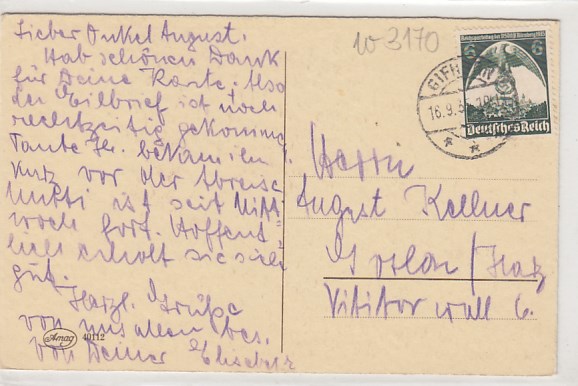 Lieber Onkel August.
Hab schönen Dank
für Deine Karte. Also
der Eilbrief ist noch
rechtzeitig gekommen.
Tante Hr. bekam ihn
kurz vor der Abreise
Mutti ist seit Mitt=
woch fort. Hoffent=
lich erholt sie sich
gut.
Herzl. Grüße
von uns allen bes.
von Deiner Elisabeth
Amag
40112
w-3170
Reichsparteitag der NSDAP Nürnberg 1935
6 6
Deutsches Reich
GIFH
16.9.3
Herrn
August Kellner
Goslar / Harz
Vititor wall 6.